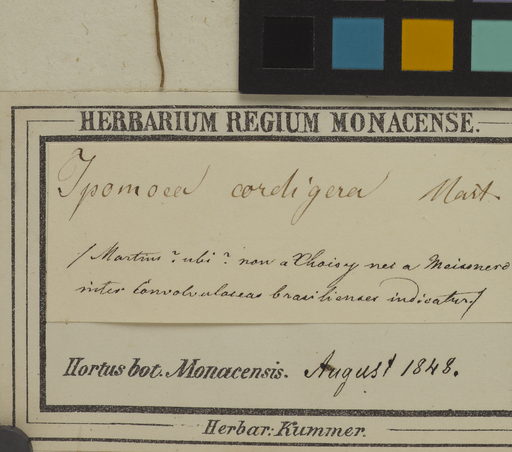 HERBARIUM REGIUM MONACENSE.
Ipomoea cordigera Mart
/ Martius? ubi? non a Choisy nec a Meissnero
inter Convolvulaceas brasilienses indicatur. /
Hortus bot. Monacensis. August 1848.
Herbar. Kummer.